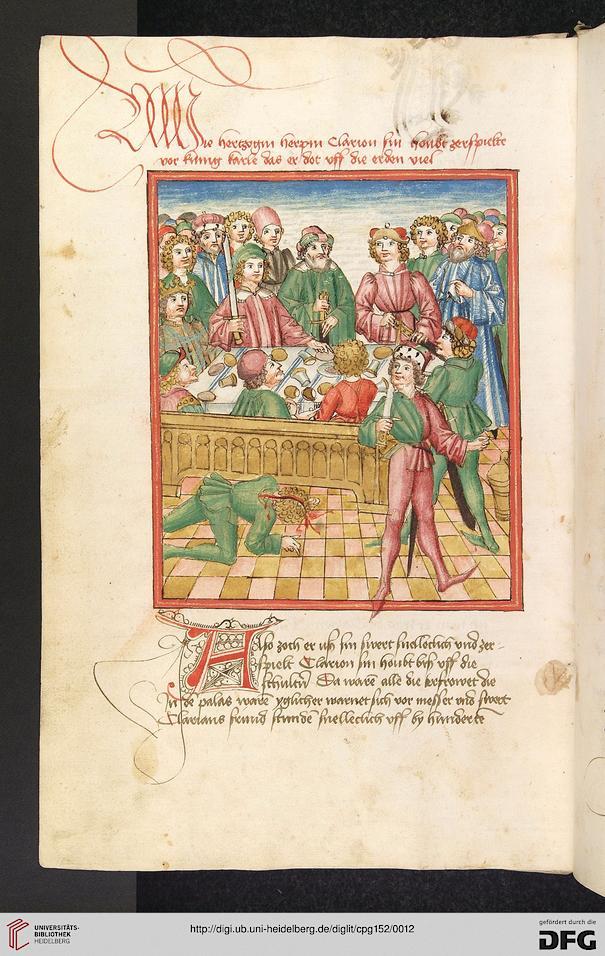 Wie hertzogin herpin Clarion sin houbt zerspielte
vor kunig karle das er dot vff die erden viel
Also zoch er vß sin swert snelleclich vnd zer-
spielt Clarion sin houbt biß vff die
schultern Da warẽ alle die erfrowet die
Jn dẽ palas warẽ yglicher warnet sich vor messer vnd swert
Clarians frund stundẽ snelleclich vff by hunderte
UNIVERSITÄTS-
BIBLIOTHEK
HEIDELBERG
http://digi.ub.uni-heidelberg.de/diglit/cpg152/0012
gefördert durch die
DFG